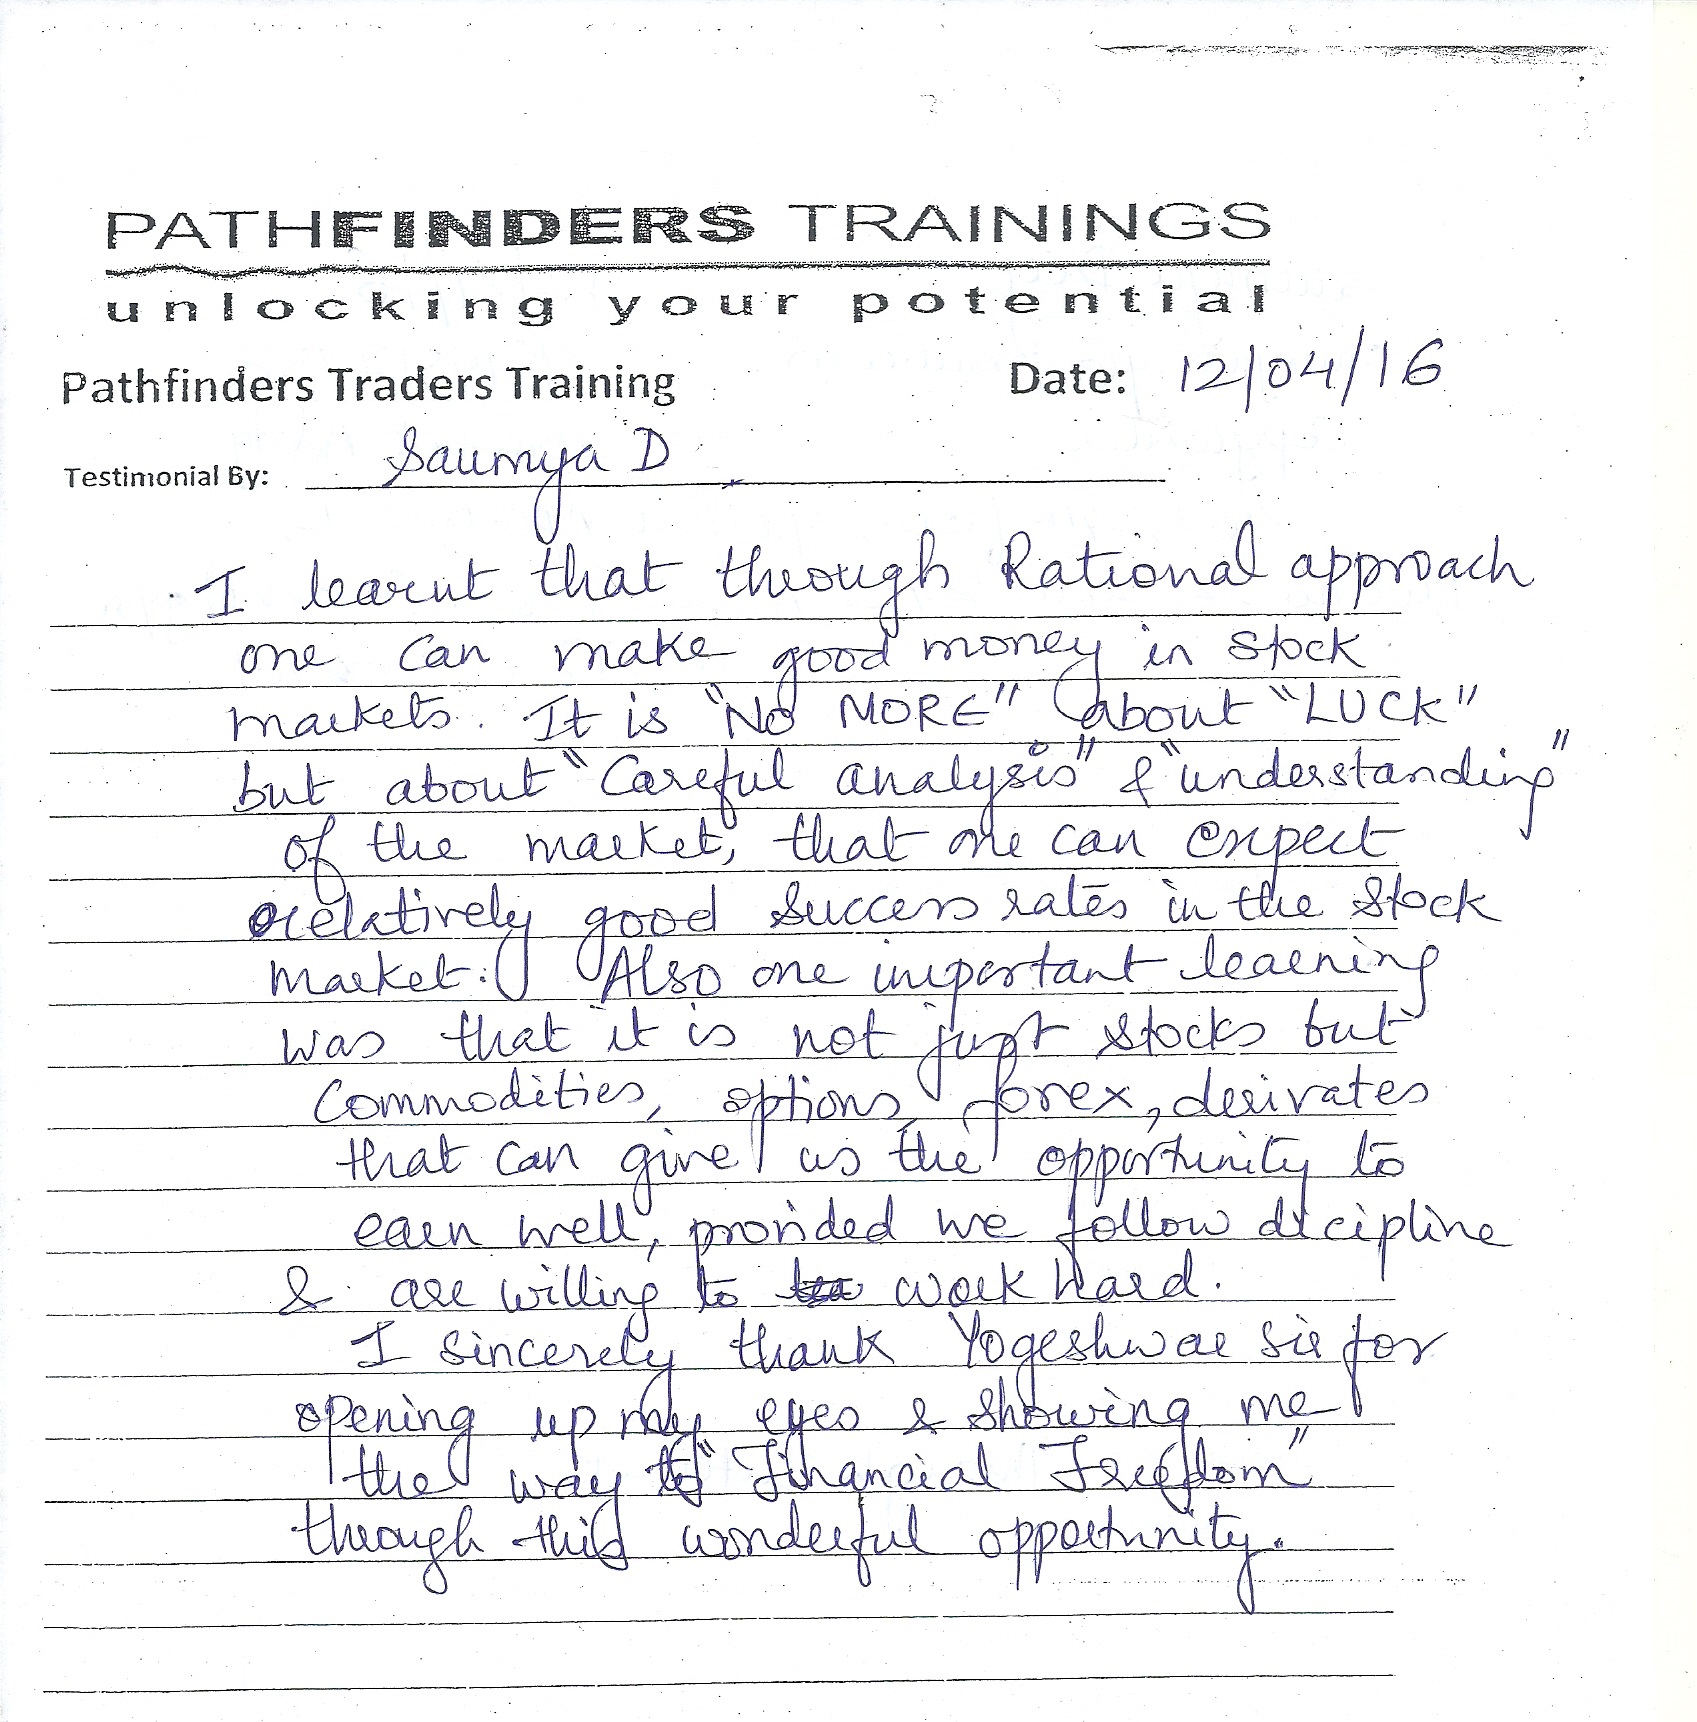 PATHFINDERS TRAININGS
unlocking your potential
Pathfinders Traders Training Date: 12/04/16
Testimonial By: Saumya D
I learnt that through Rational approach
one can make good money in stock
markets. It is "No MORE" about "LUCK"
but about "Careful analysis" & "understanding"
of the market, that one can expect
relatively good success rates in the stock
market. Also one important learning
was that it is not just stocks but
commodities, options, forex, derivates
that can give us the opportunity to
earn well, provided we follow dicipline
& are willing to work hard.
I sincerely thank Yogeshwar sir for
opening up my eyes & showing me
the way to "Financial Freedom"
through this wonderful opportunity.